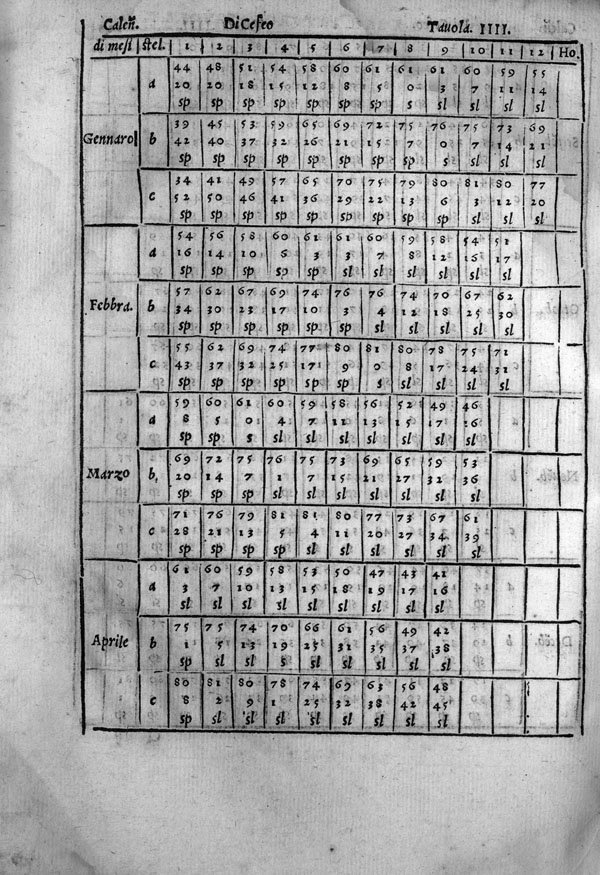 Caleñ. Di Cefeo Tavola. IIII.
di mesi stel. 1 2 3 4 5 6 7 8 9 10 11 12 Ho.
44 48 51 54 58 60 61 61 61 60 59 55
a 20 20 18 15 12 8 5 0 3 7 11 14
sp sp sp sp sp sp sp s sl sl sl sl
39 45 53 59 65 69 72 75 76 75 73 69
Gennaro b 42 40 37 32 26 21 15 7 0 7 14 21
sp sp sp sp sp sp sp sp s sl sl sl
34 41 49 57 65 70 75 79 80 81 80 77
c 52 50 46 41 36 29 22 13 6 3 12 20
sp sp sp sp sp sp sp sp sp sl sl sl
54 56 58 60 61 61 60 59 58 54 51
a 16 14 10 6 3 3 7 8 12 16 17
sp sp sp sp sp sl sl sl sl sl sl
57 62 67 69 74 76 76 74 70 67 62
Febbra. b 34 30 23 17 10 3 4 12 18 25 30
sp sp sp sp sp sp sl sl sl sl sl
55 62 69 74 77 80 81 80 78 75 71
c 43 37 32 25 17 9 0 8 17 24 31
sp sp sp sp sp sp s sl sl sl sl
59 60 61 60 59 58 56 52 49 46
a 8 5 0 4 7 11 13 15 17 16
sp sp s sl sl sl sl sl sl sl
69 72 75 76 75 73 69 65 59 53
Marzo b, 20 14 7 1 7 15 21 27 32 36
sp sp sp sl sl sl sl sl sl sl
71 76 79 81 81 80 77 73 67 61
c 28 21 13 5 4 11 20 27 34 39
sp sp sp sp sl sl sl sl sl sl
61 60 59 58 53 50 47 43 41
a 3 7 10 13 15 18 19 17 16
sl sl sl sl sl sl sl sl sl
75 75 74 70 66 61 56 49 42
Aprile b 1 5 13 19 25 31 35 37 38
sp sl sl s sl sl sl sl sl
80 81 80 78 74 69 63 56 48
c 8 2 9 1 25 32 38 42 45
sp sl sl sl sl sl sl sl sl